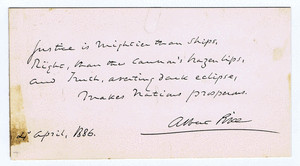 Justice is mightier than ships,
Right, than the cannon's brazen lips,
And Truth, averting dark eclipse,
Makes Nations prosperous.
Albert Pike
2 April, 1886.